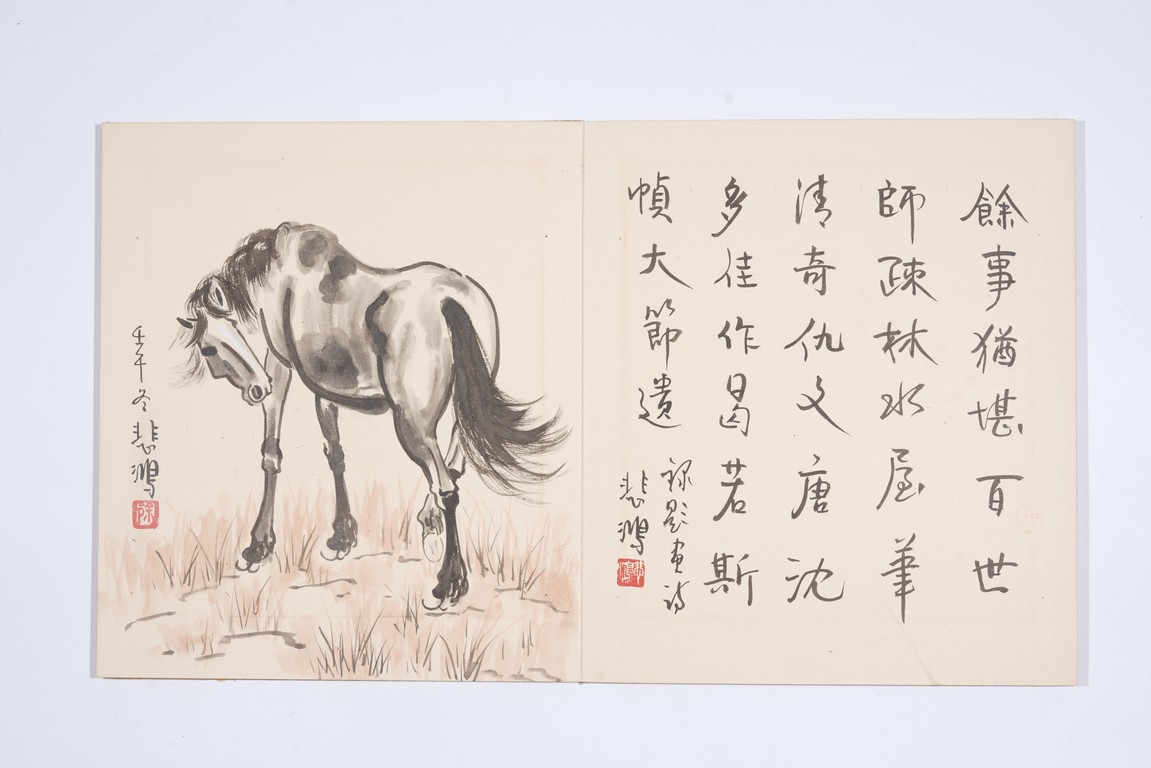 餘事猶堪百世
師疎林水屋筆
清奇仇文唐沈
多佳作曷若斯
幀大節遺
錄題画詩
悲鴻
壬午冬
悲鴻